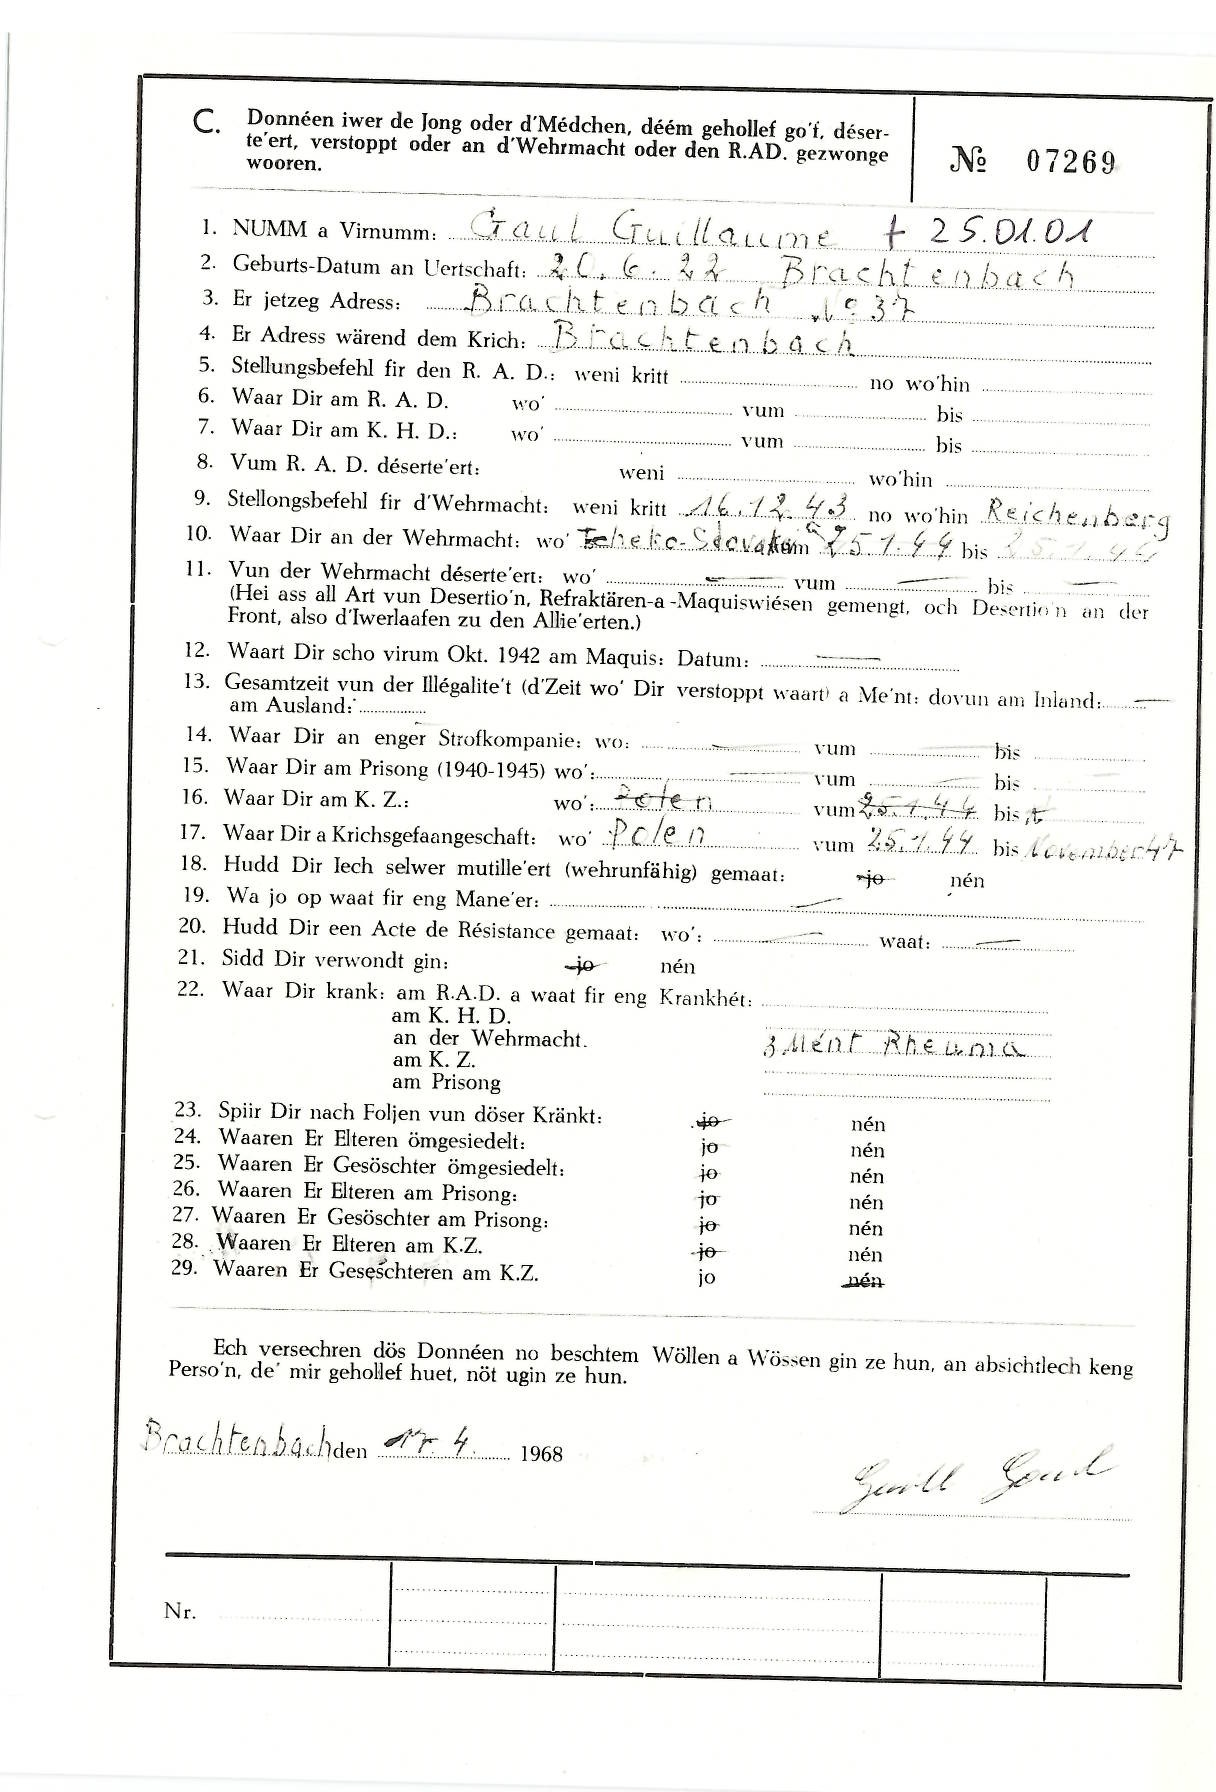 C. Donnéen iwer de Jong oder d'Médchen, déém gehollef go'f, déser-
te'ert, verstoppt oder an d'Wehrmacht oder den R.AD. gezwonge
wooren.
№ 07269
1. NUMM a Virnumm: Gaul Guillaume † 25.01.01
2. Geburts-Datum an Uertschaft: 20.6.22 Brachtenbach
3. Er jetzeg Adress: Brachtenbach No 37
4. Er Adress wärend dem Krich: Brachtenbach
5. Stellungsbefehl fir den R. A. D.: weni kritt no wo'hin
6. Waar Dir am R. A. D. wo' vum bis
7. Waar Dir am K. H. D.: wo' vum bis
8. Vum R. A. D. déserte'ert: weni wo'hin
9. Stellongsbefehl fir d'Wehrmacht: weni kritt 16.12.43 no wo'hin Reichenberg
10. Waar Dir an der Wehrmacht: wo' vum 25.1.44 bis
11. Vun der Wehrmacht déserte'ert: wo' — vum — bis —
(Hei ass all Art vun Desertio'n, Refraktären-a -Maquiswiésen gemengt, och Desertio'n an der
Front, also d'Iwerlaafen zu den Allie'erten.)
12. Waart Dir scho virum Okt. 1942 am Maquis: Datum: —
13. Gesamtzeit vun der Illégalite't (d'Zeit wo' Dir verstoppt waart) a Me'nt: dovun am Inland: —
am Ausland:
14. Waar Dir an enger Strofkompanie: wo: — vum — bis
15. Waar Dir am Prisong (1940-1945) wo': — vum — bis —
16. Waar Dir am K. Z.: wo': Polen vum 25.1.44 bis
17. Waar Dir a Krichsgefaangeschaft: wo' Polen vum 25.1.44 bis November 47
18. Hudd Dir Iech selwer mutille'ert (wehrunfähig) gemaat: jo nén
19. Wa jo op waat fir eng Mane'er: —
20. Hudd Dir een Acte de Résistance gemaat: wo': — waat: —
21. Sidd Dir verwondt gin: jo nén
22. Waar Dir krank: am R.A.D. a waat fir eng Krankhét:
am K. H. D.
an der Wehrmacht. 3 Mént Rheuma
am K. Z.
am Prisong
23. Spiir Dir nach Foljen vun döser Kränkt: jo nén
24. Waaren Er Elteren ömgesiedelt: jo nén
25. Waaren Er Gesöschter ömgesiedelt: jo nén
26. Waaren Er Elteren am Prisong: jo nén
27. Waaren Er Gesöschter am Prisong: jo nén
28. Waaren Er Elteren am K.Z. jo nén
29. Waaren Er Geseschteren am K.Z. jo nén
Ech versechren dös Donnéen no beschtem Wöllen a Wössen gin ze hun, an absichtlech keng
Perso'n, de' mir gehollef huet, nöt ugin ze hun.
Brachtenbach den 17.4. 1968
Guill Gaul
Nr.